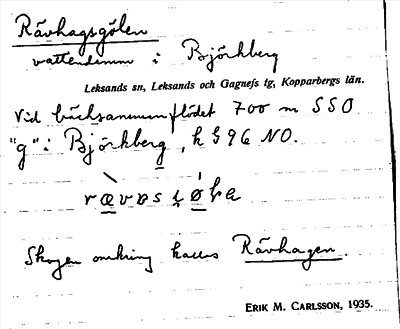 Rävhagsgölen
vattendamm i Björkberg
Leksands sn, Leksands och Gagnefs tg, Kopparbergs län.
Vid bäcksammanflödet 700 m SSO
"g" i Björkberg, k 596 NO.
Skogen omkring kallas Rävhagen.
ERIK M. CARLSSON, 1935.